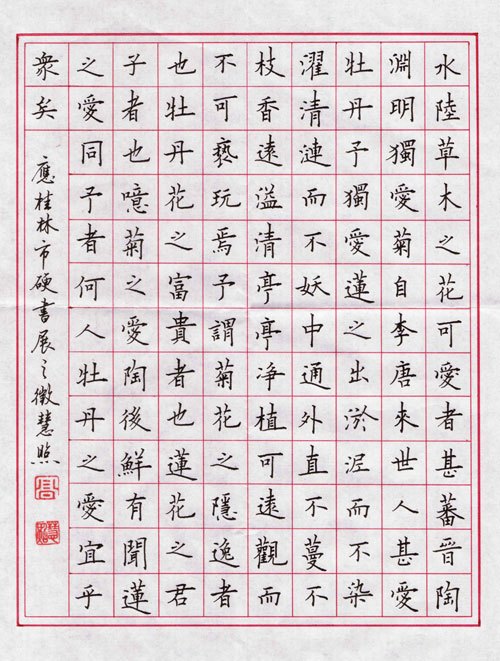 水陸草木之花可愛者甚蕃晉陶
淵明獨愛菊自李唐來世人甚愛
牡丹予獨愛蓮之出淤泥而不染
濯清漣而不妖中通外直不蔓不
枝香遠溢清亭亭净植可遠觀而
不可褻玩焉予謂菊花之隱逸者
也牡丹花之富貴者也蓮花之君
子者也噫菊之愛陶後鮮有聞蓮
之愛同予者何人牡丹之愛宜乎
衆矣
應桂林市硬書展之徵慧照